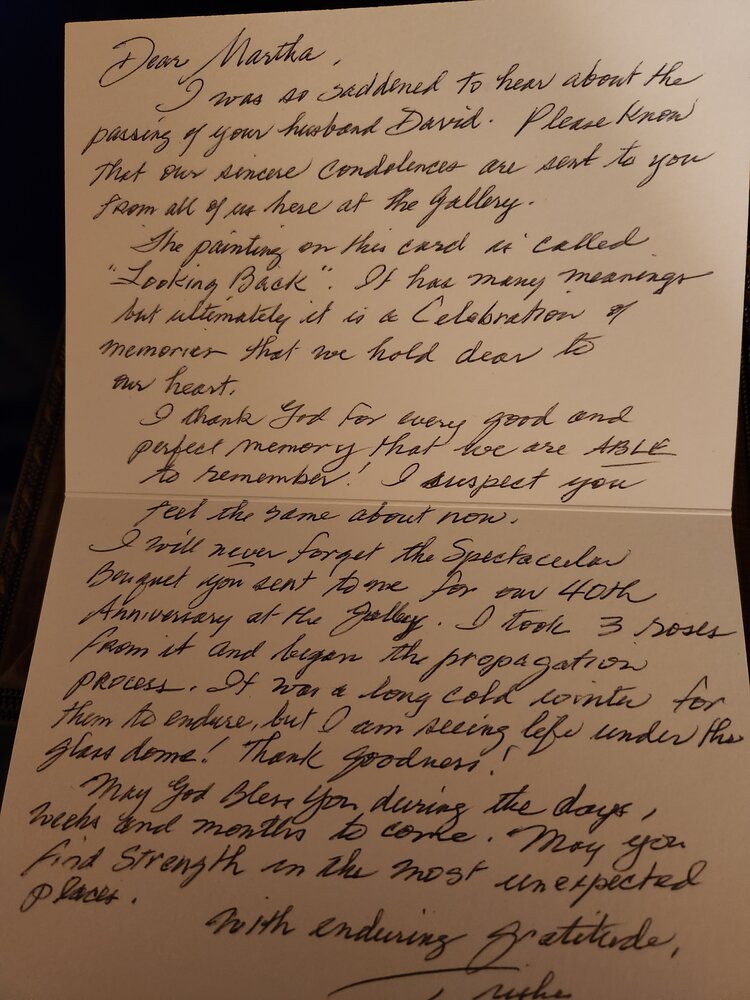 Dear Martha,
I was so saddened to hear about the
passing of your husband David. Please Know
that our sincere condolences are sent to you
from all of us here at the Gallery.
The painting on this card is called
"Looking Back". It has many meanings
but ultimately it is a Celebration of
memories that we hold dear to
our heart.
I thank God for every good and
perfect memory that we are ABLE
to remember! I suspect you
feel the same about now.
I will never forget the Spectacular
Bouquet you sent to me for our 40th
Anniversary at the Gallery. I took 3 roses
from it and began the propagation
process. It was a long cold winter for
them to endure, but I am seeing life under the
glass dome! Thank goodness!
May God Bless You during the days,
weeks and months to come. May you
find Strength in the most unexpected
places.
With enduring gratitude,